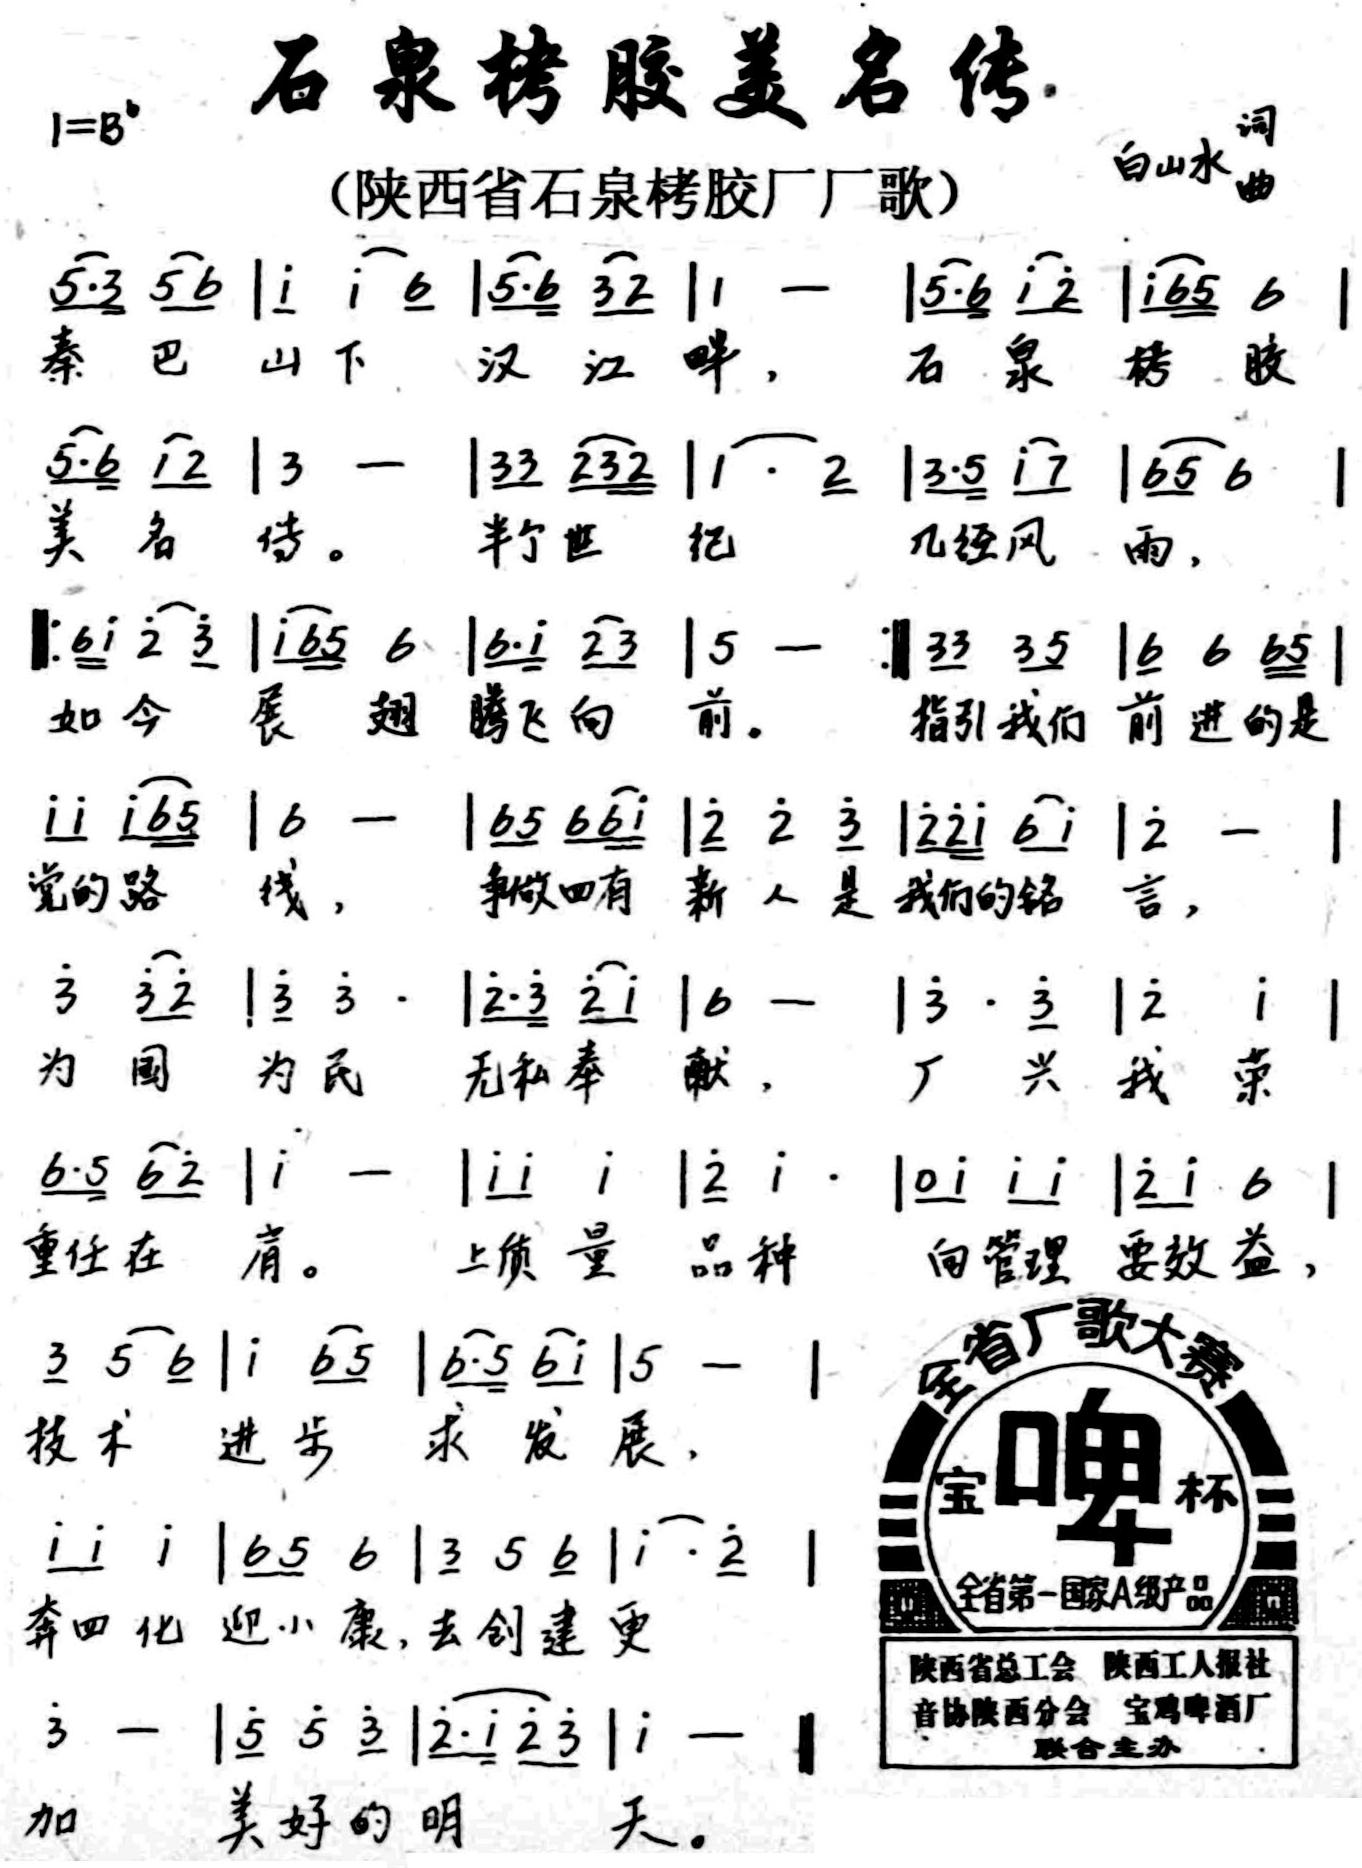 石泉栲胶美名传
1=B♭
白山水 词曲
(陕西省石泉栲胶厂厂歌)
5·3 56 | i i 6 | 5·6 32 | 1 — | 5·6 i2 | i65 6 |
秦巴山下 汉江畔, 石泉栲胶
5·6 12 | 3 — | 33 232 | 1 · 2 | 3·5 i7 | 65 6 |
美名传。 半个世纪 几经风雨,
|: 6i 2 3 | i65 6 | 6·i 23 | 5 — :| 33 35 | 6 6 65 |
如今展翅腾飞向前。 指引我们前进的是
ii i65 | 6 — | 65 66i | 2 2 3 | 22i 6i | 2 — |
党的路线, 争做四有新人是我们的铭言,
3 32 | 3 3 · | 2·3 2i | 6 — | 3 · 3 | 2 i |
为国为民 无私奉献, 厂兴我荣
6·5 62 | i — | ii i | 2 i · | 0i ii | 2i 6 |
重任在肩。 上质量品种 向管理要效益,
3 5 6 | i 65 | 6·5 6i | 5 — |
技术进步求发展,
ii i | 65 6 | 3 5 6 | i · 2 |
奔四化迎小康,去创建更
3 — | 5 5 3 | 2·i 23 | i — ‖
加 美好的明天。
全省厂歌大赛
宝啤杯
全省第一国家A级产品
陕西省总工会 陕西工人报社
音协陕西分会 宝鸡啤酒厂
联合主办